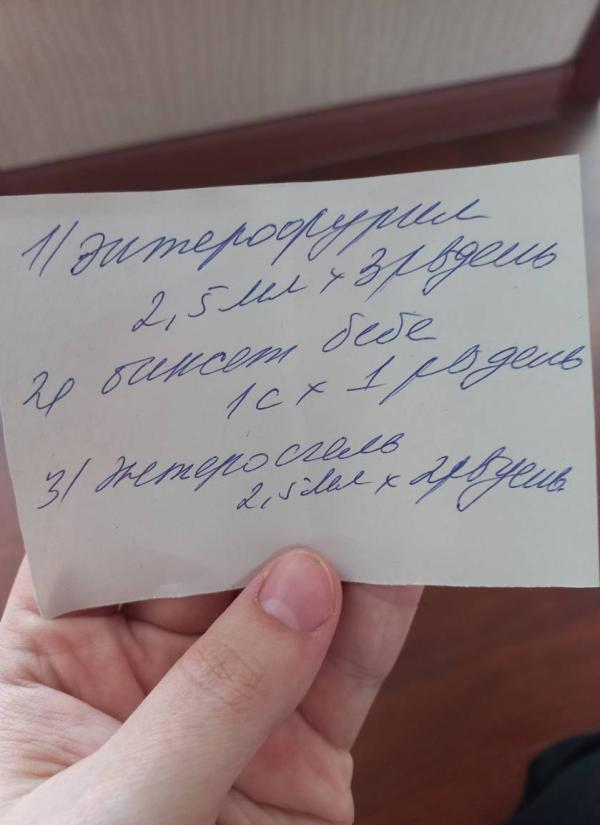 1) Энтерофурил
2,5 мл х 3 р в день
2) бинсет бебе
1 с х 1 р в день
3) энтеросгель
2,5 мл х 2 р в день